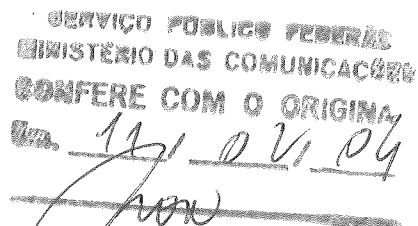 SERVIÇO PÚBLICO FEDERAL
MINISTÉRIO DAS COMUNICAÇÕES
CONFERE COM O ORIGINA
Em, 11, 02, 04